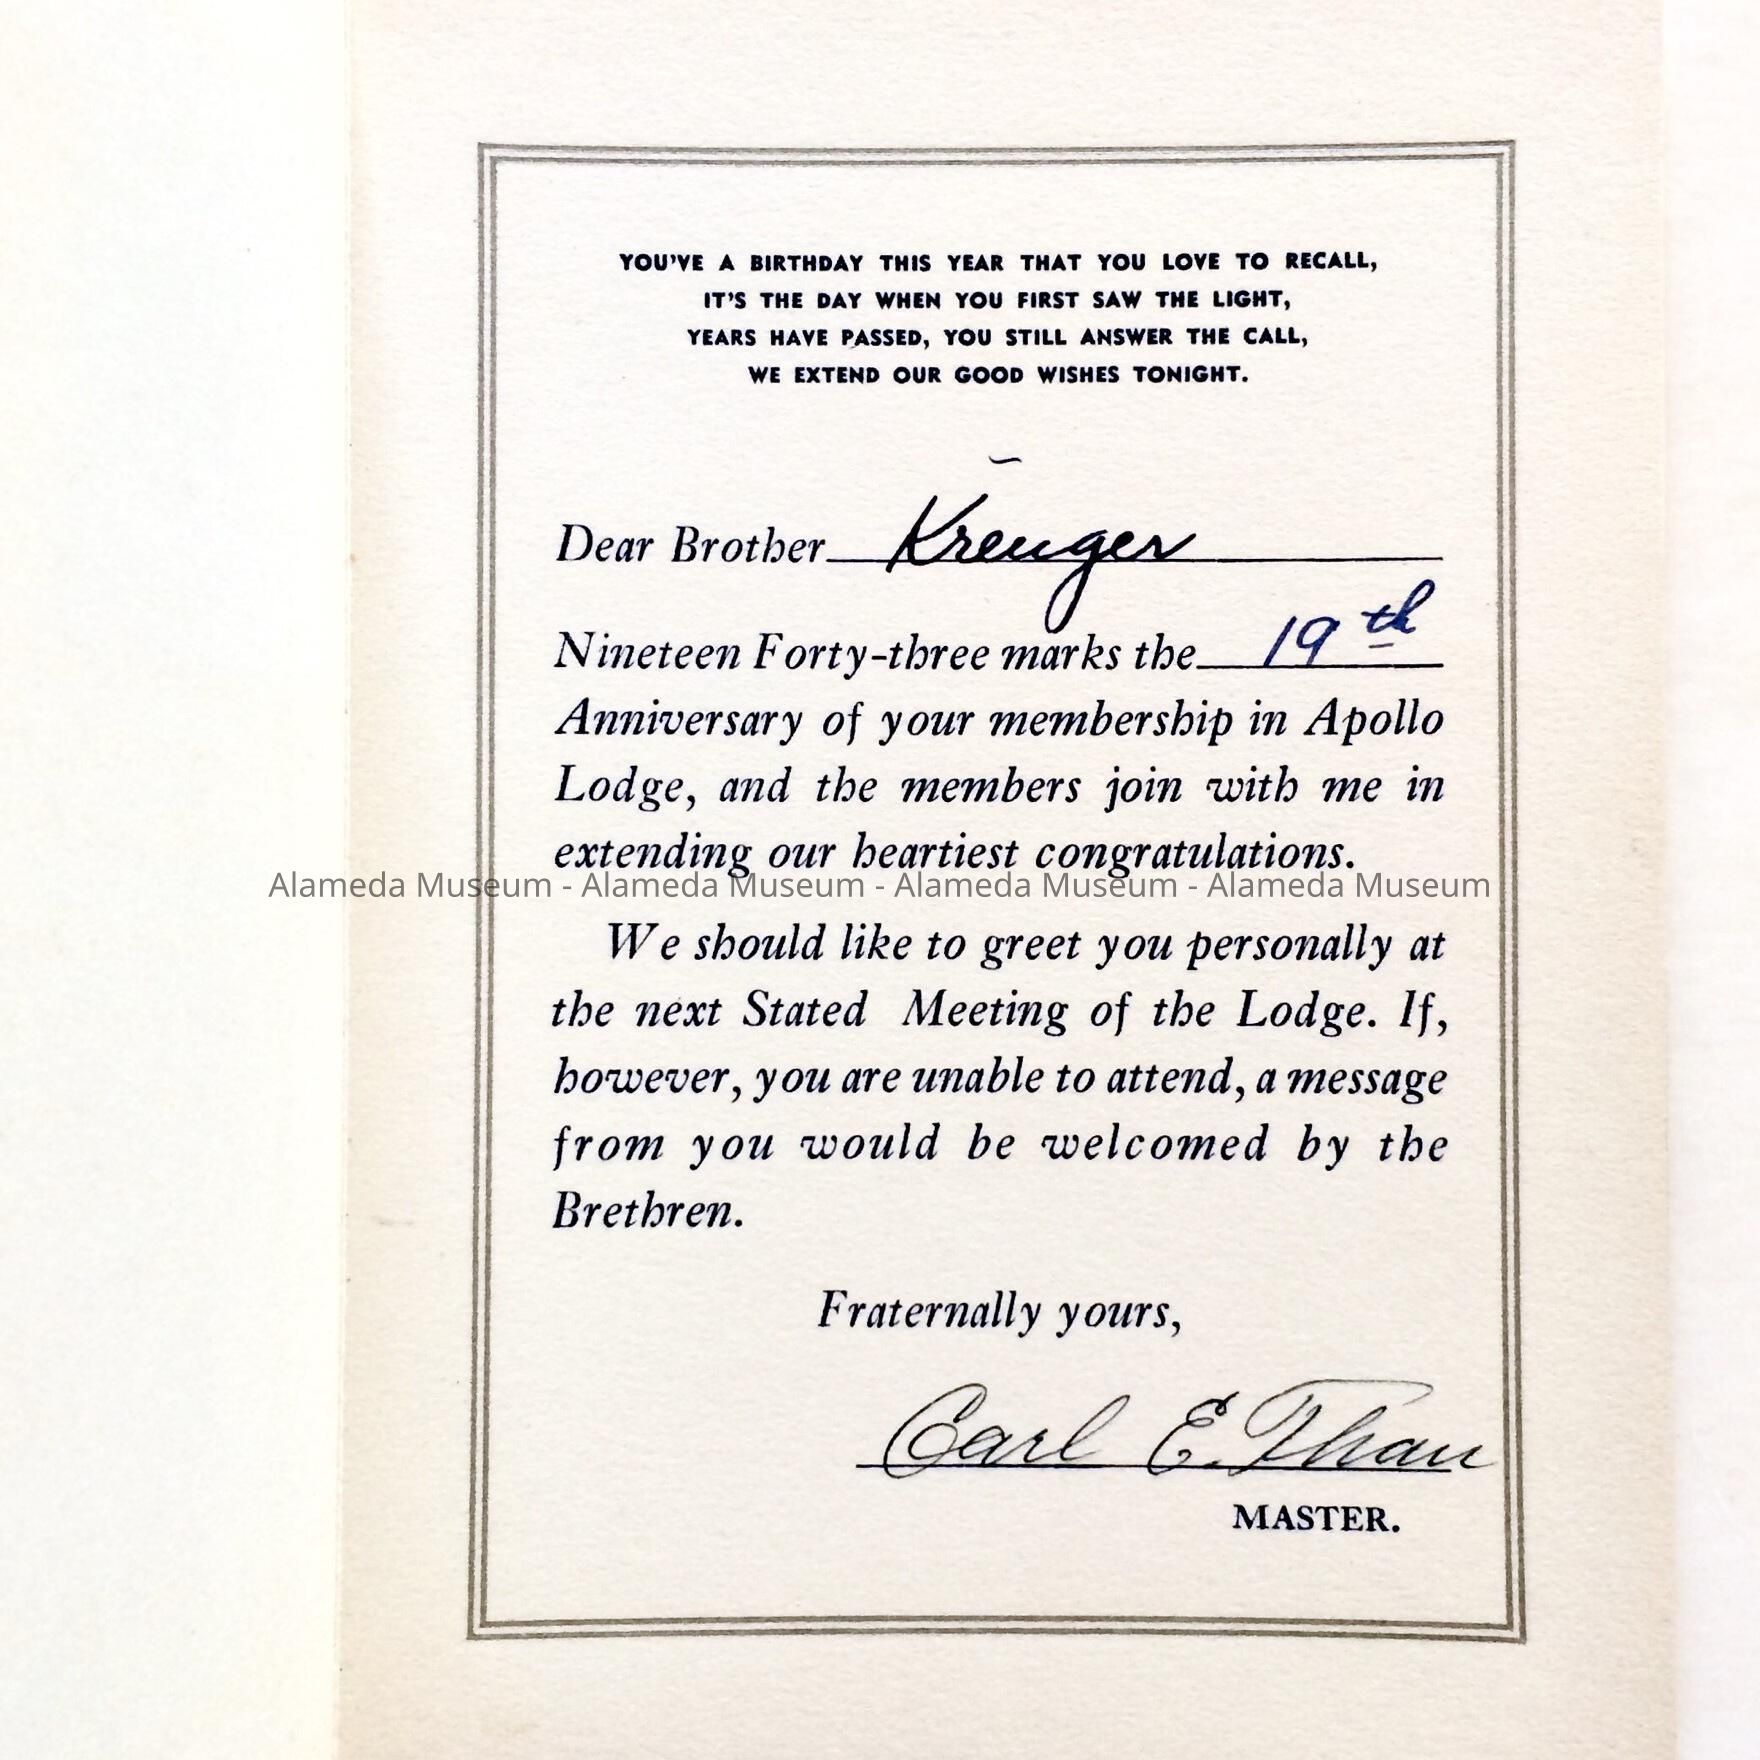 YOU'VE A BIRTHDAY THIS YEAR THAT YOU LOVE TO RECALL,
IT'S THE DAY WHEN YOU FIRST SAW THE LIGHT,
YEARS HAVE PASSED, YOU STILL ANSWER THE CALL,
WE EXTEND OUR GOOD WISHES TONIGHT.
Dear Brother Kreuger
Nineteen Forty-three marks the 19th
Anniversary of your membership in Apollo
Lodge, and the members join with me in
extending our heartiest congratulations.
Alameda Museum - Alameda Museum - Alameda Museum - Alameda Museum
We should like to greet you personally at
the next Stated Meeting of the Lodge. If,
however, you are unable to attend, a message
from you would be welcomed by the
Brethren.
Fraternally yours,
Carl E. Thau
MASTER.